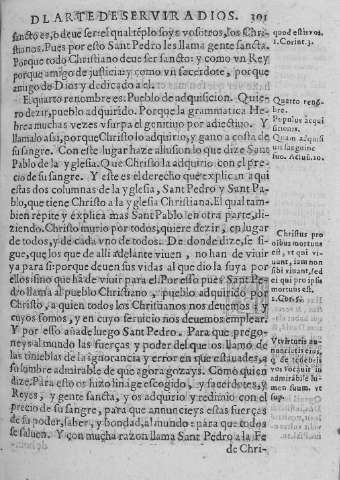 DL ARTE DE SERVIR A DIOS. 301
sancto es, o deue ser: el qual tẽplo soys vosotros, los Chri-
stianos. Pues por esto Sant Pedro les llama gente sancta.
Porque todo Christiano deue ser sancto: y como vn Rey
por que amigo de justicia: y como vn sacerdote, porque
amigo de Dios y dedicado a el.
El quarto renombre es: Pueblo de adquisicion. Quie-
ro dezir, pueblo adquirido. Porque la grammatica He-
brea muchas vezes vsurpa el genitiuo por adiectiuo. Y
llamalo assi, porque Christo lo adquirio, y gano a costa de
su sangre. Con este lugar haze allusion lo que dize Sant
Pablo de la yglesia. Que Christo la adquirio con el pre-
cio de su sangre. Y este es el derecho que explican aqui
estas dos columnas de la yglesia, Sant Pedro y Sant Pa-
blo, que tiene Christo a la yglesia Christiana. El qual tam
bien repite y explica mas Sant Pablo en otra parte, di-
ziendo. Christo murio por todos, quiere dezir, en lugar
de todos, y de cada vno de todos. De donde dize, se si-
gue, que los que de alli adelante viuen, no han de viuir
ya para si: porque deuen sus vidas al que dio la suya por
ellos sino que hã de viuir para el. Por esso pues Sant Pe-
dro llama al pueblo Christiano, pueblo adquirido por
Christo, a quien todos los Christianos nos deuemos: y
cuyos somos, y en cuyo seruicio nos deuemos emplear.
Y por esso añade luego Sant Pedro. Para que prego-
neys al mundo las fuerças y poder del que os llamo de
las tinieblas de la ignorancia y error en que estauades, a
su lumbre admirable de que agora gozays. Como quien
dize. Para esto os hizo linage escogido, y sacerdotes, y
Reyes, y gente sancta, y os adquirio y redimio con el
precio de su sangre, para que annuncieys estas fuerças
de su poder, saber, y bondad, al mundo: para que todos
se saluen. Y con mucha razon llama Sant Pedro a la Fe
de Chri-
quod estis vos.
1. Corint. 3.
Quarto renõ-
bre.
Populus acqui
sitionis.
Quam adquisi
uit sanguine
suo. Actuũ. 20.
Christus pro
oibus mortuus
est, vt qui vi-
uunt, iam non
sibi viuant, sed
ei qui pro ipsis
mortuus est.
2. Cor. 5.
Vt virtutis an-
nuncietis eius,
q̃ de tenebris
vos vocauit in
admirabile lu-
men suum. vt
sup.